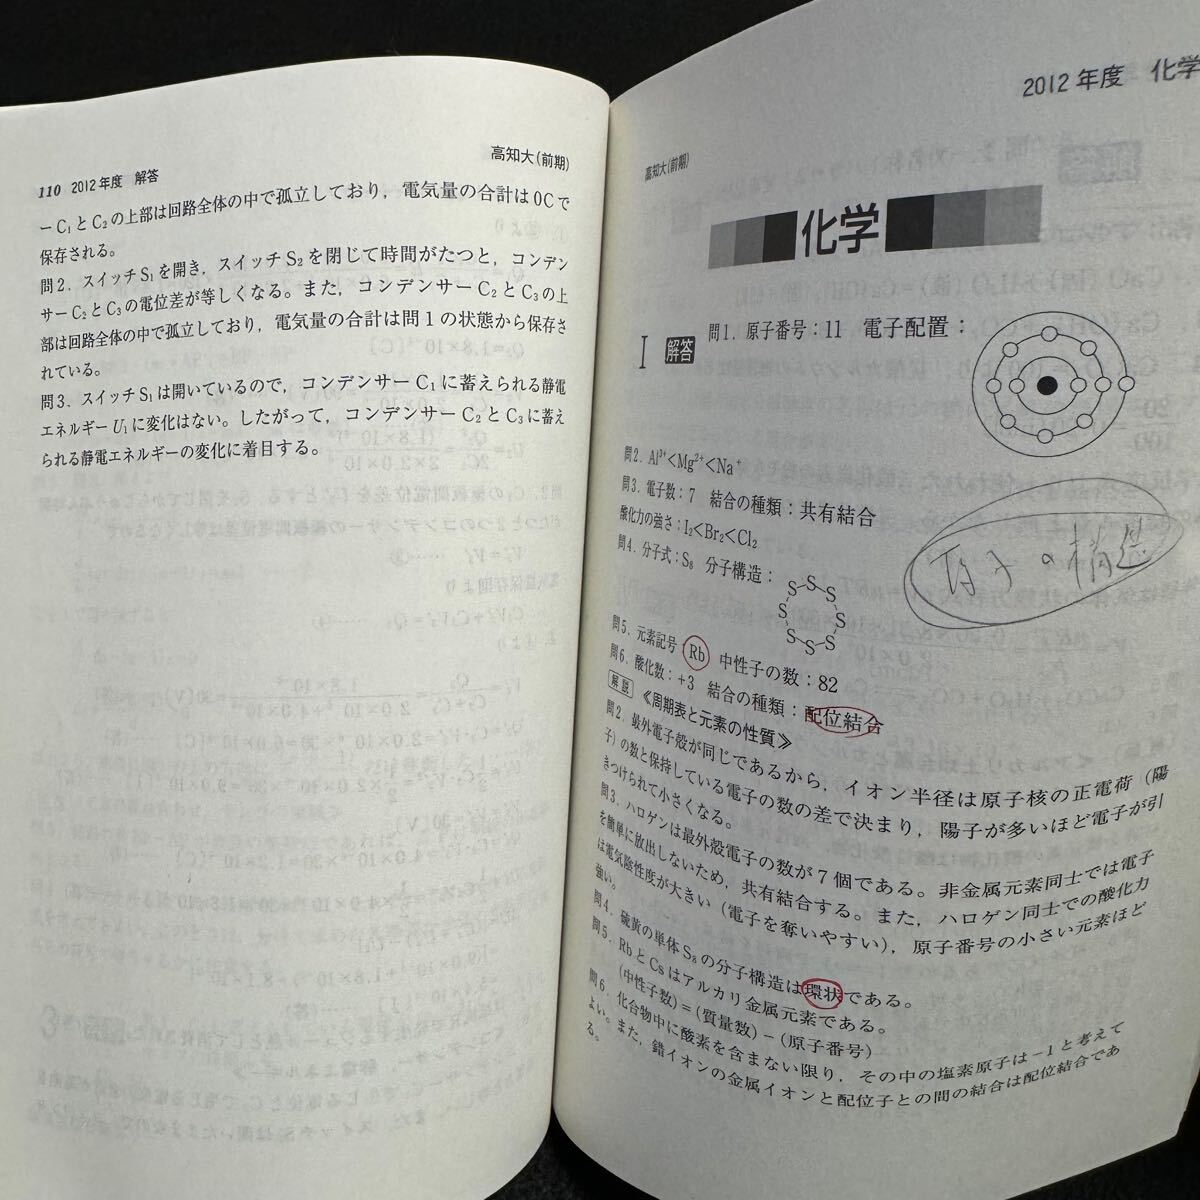 110 2012年度 解答
高知大(前期)
ーC₁とC₂の上部は回路全体の中で孤立しており，電気量の合計は0Cで
保存される。
問2．スイッチS₁を開き，スイッチS₂を閉じて時間がたつと，コンデン
サーC₂とC₃の電位差が等しくなる。また，コンデンサーC₂とC₃の上
部は回路全体の中で孤立しており，電気量の合計は問1の状態から保存さ
れている。
問3．スイッチS₁は開いているので，コンデンサーC₁に蓄えられる静電
エネルギーU₁に変化はない。したがって，コンデンサーC₂とC₃に蓄え
られる静電エネルギーの変化に着目する。
2012年度 化学
高知大(前期)
化学
I 解答 問1．原子番号：11 電子配置：
問2．Al³⁺<Mg²⁺<Na⁺
問3．電子数：7 結合の種類：共有結合
酸化力の強さ：I₂<Br₂<Cl₂
原子の構造
問4．分子式：S₈ 分子構造：
S
S S
S S
S S
S
問5．元素記号：Rb 中性子の数：82
問6．酸化数：+3 結合の種類：配位結合
解説 ≪周期表と元素の性質≫
問2．最外電子殻が同じであるから，イオン半径は原子核の正電荷（陽
子）の数と保持している電子の数の差で決まり，陽子が多いほど電子が引
きつけられて小さくなる。
問3．ハロゲンは最外殻電子の数が7個である。非金属元素同士では電子
を簡単に放出しないため，共有結合する。また，ハロゲン同士での酸化力
は電気陰性度が大きい（電子を奪いやすい），原子番号の小さい元素ほど
強い。
問4．硫黄の単体S₈の分子構造は環状である。
問5．RbとCsはアルカリ金属元素である。
(中性子数)＝(質量数)－(原子番号)
問6．化合物中に酸素を含まない限り，その中の塩素原子は－1と考えて
よい。また，錯イオンの金属イオンと配位子との間の結合は配位結合であ
る。